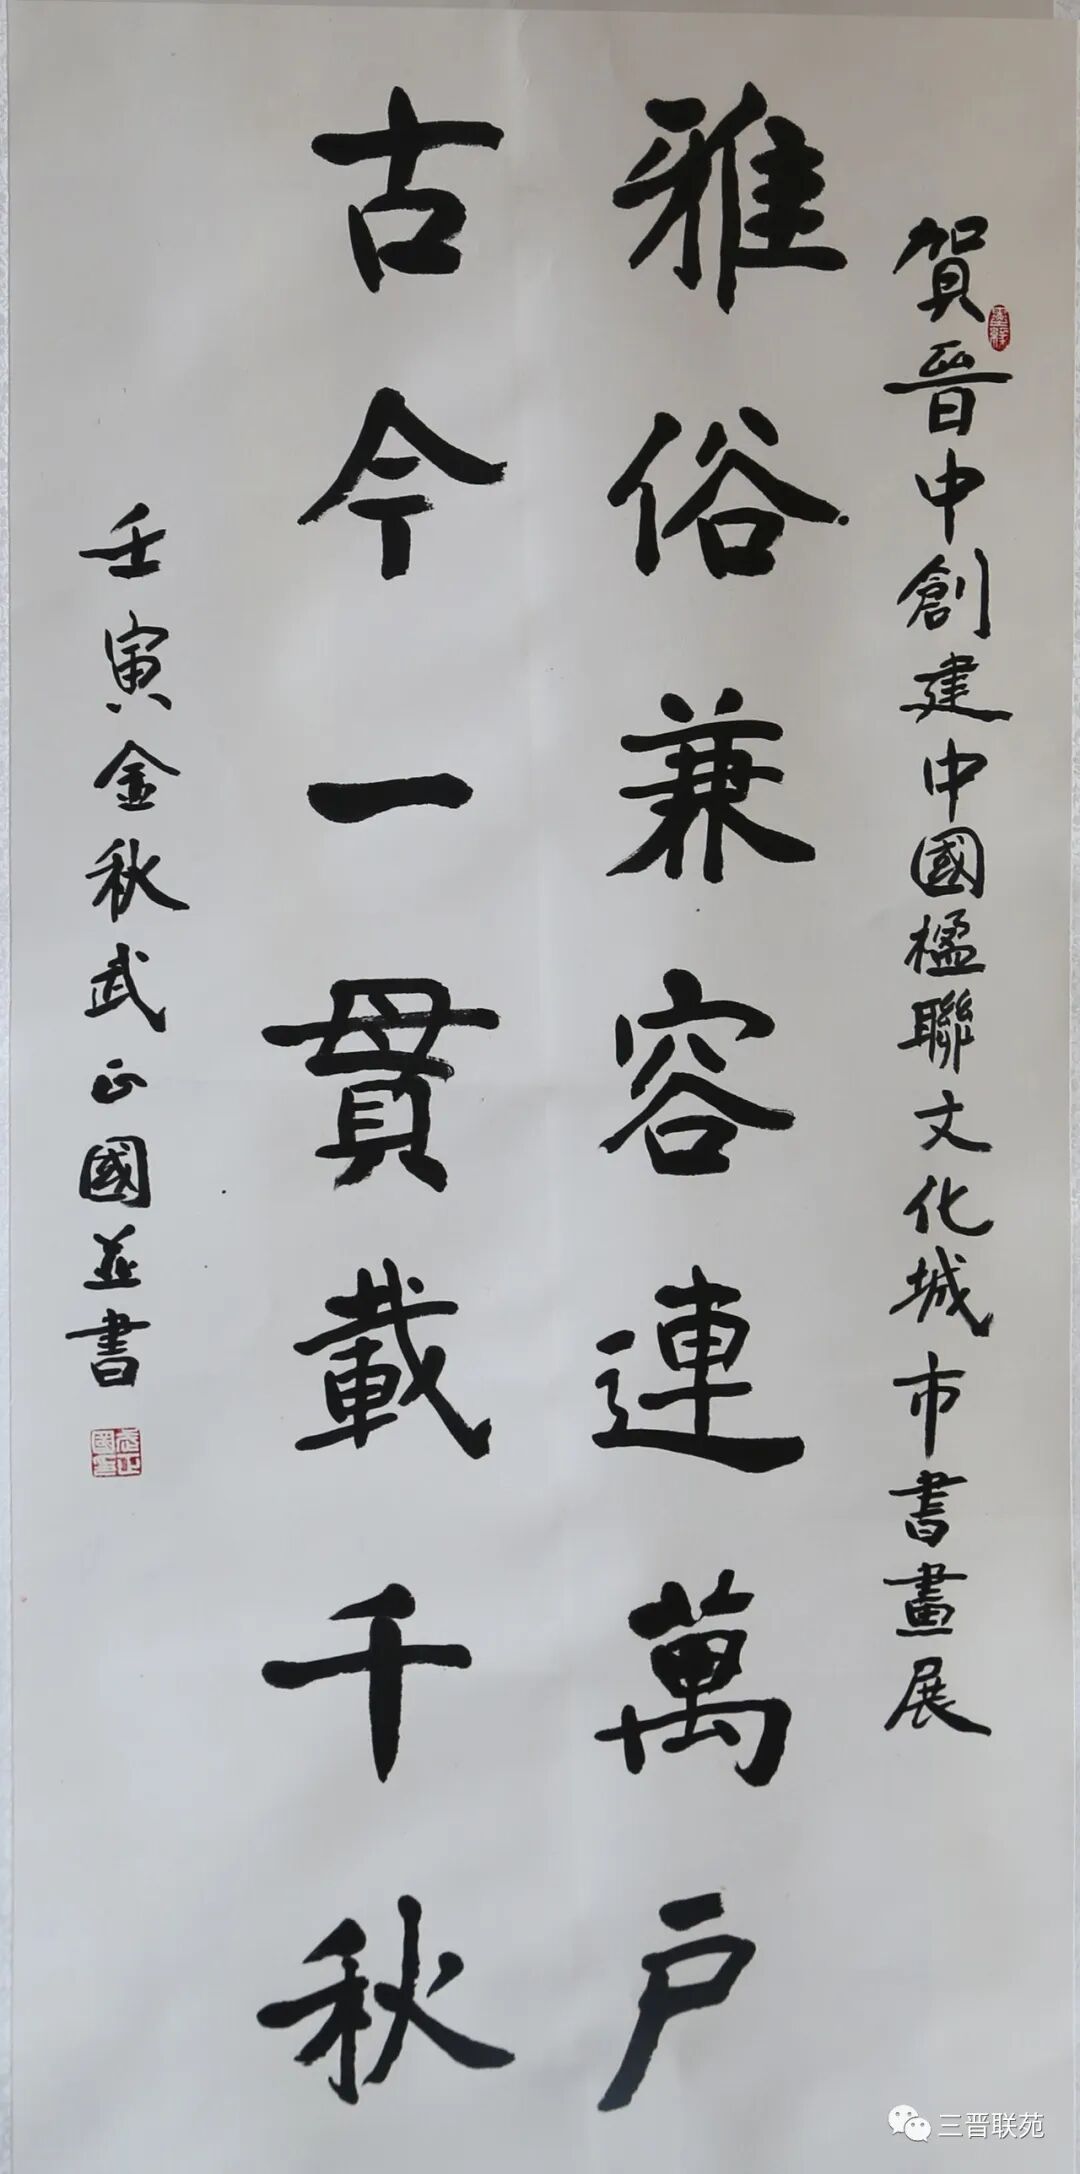 賀晉中創建中國楹聯文化城市書畫展
雅俗兼容連萬戶
古今一貫載千秋
壬寅金秋武正國並書
武正國印
三晋联苑